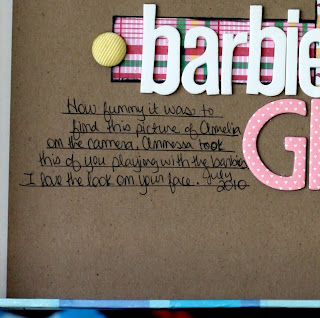 barbie
G
How funny it was to
find this picture of Annelia
on the camera. Annessa took
this of you playing with the barbies.
I love the look on your face. July
2010